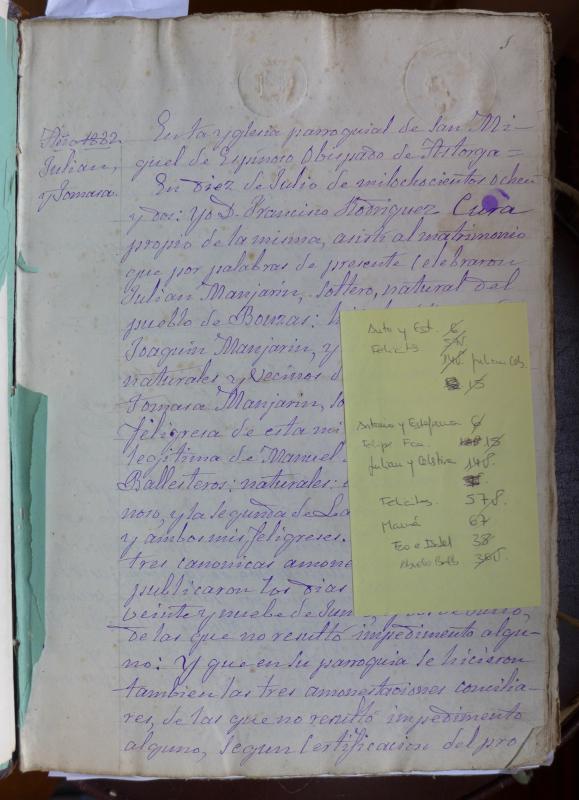 Año 1882.
Julian,
y Tomasa.
En la yglesia parroquial de San Mi-
guel de Espinoso Obispado de Astorga =
En diez de Julio de milochocientos ochen
y dos: Yo D. Francisco Rodriguez Cura
propio de la misma, asisti al matrimonio
que por palabras de presente celebraron
Julian Manjarin, soltero, natural del
pueblo de Bouzas:
Joaquin Manjarin, y
naturales y vecinos
Tomasa Manjarin,
feligresa de esta mi
legitima de Manuel
Ballesteros: naturales:
noso, y la segunda de
y ambos mis feligreses.
tres canonicas amone
publicaron los dias
veinte y nuebe de
de las que no resultó impedimento algu-
no: Y que en su parroquia se hicieron
tambien las tres amonestaciones concilia-
res, de las que no resultó impedimento
alguno, segun certificacion del pro
Anto y Est. 6
Felicitas 578
148 Julian Cels.
15
Antonio y Estefania 6
Felipe Fca. 15
Julian y Celstina 148
Felicitas 578.
María 67
Fco e Isabel 38
368